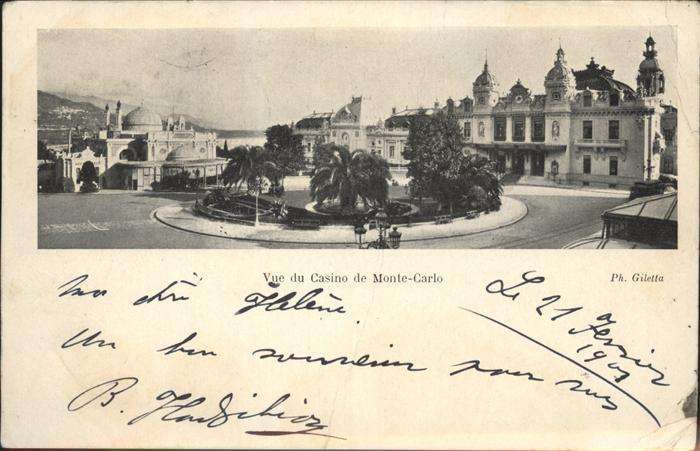 Vue du Casino de Monte-Carlo
Ph. Giletta
Ma chère Hélène.
Le 21 Février
Un bon souvenir pour vous
B.